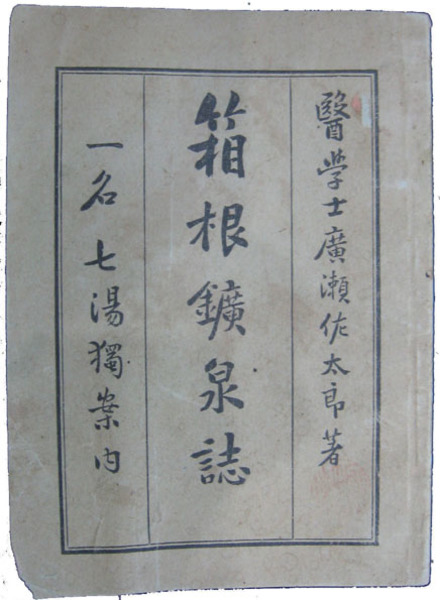 醫學士廣瀬佐太郎著
箱根鑛泉誌
一名七湯獨案内